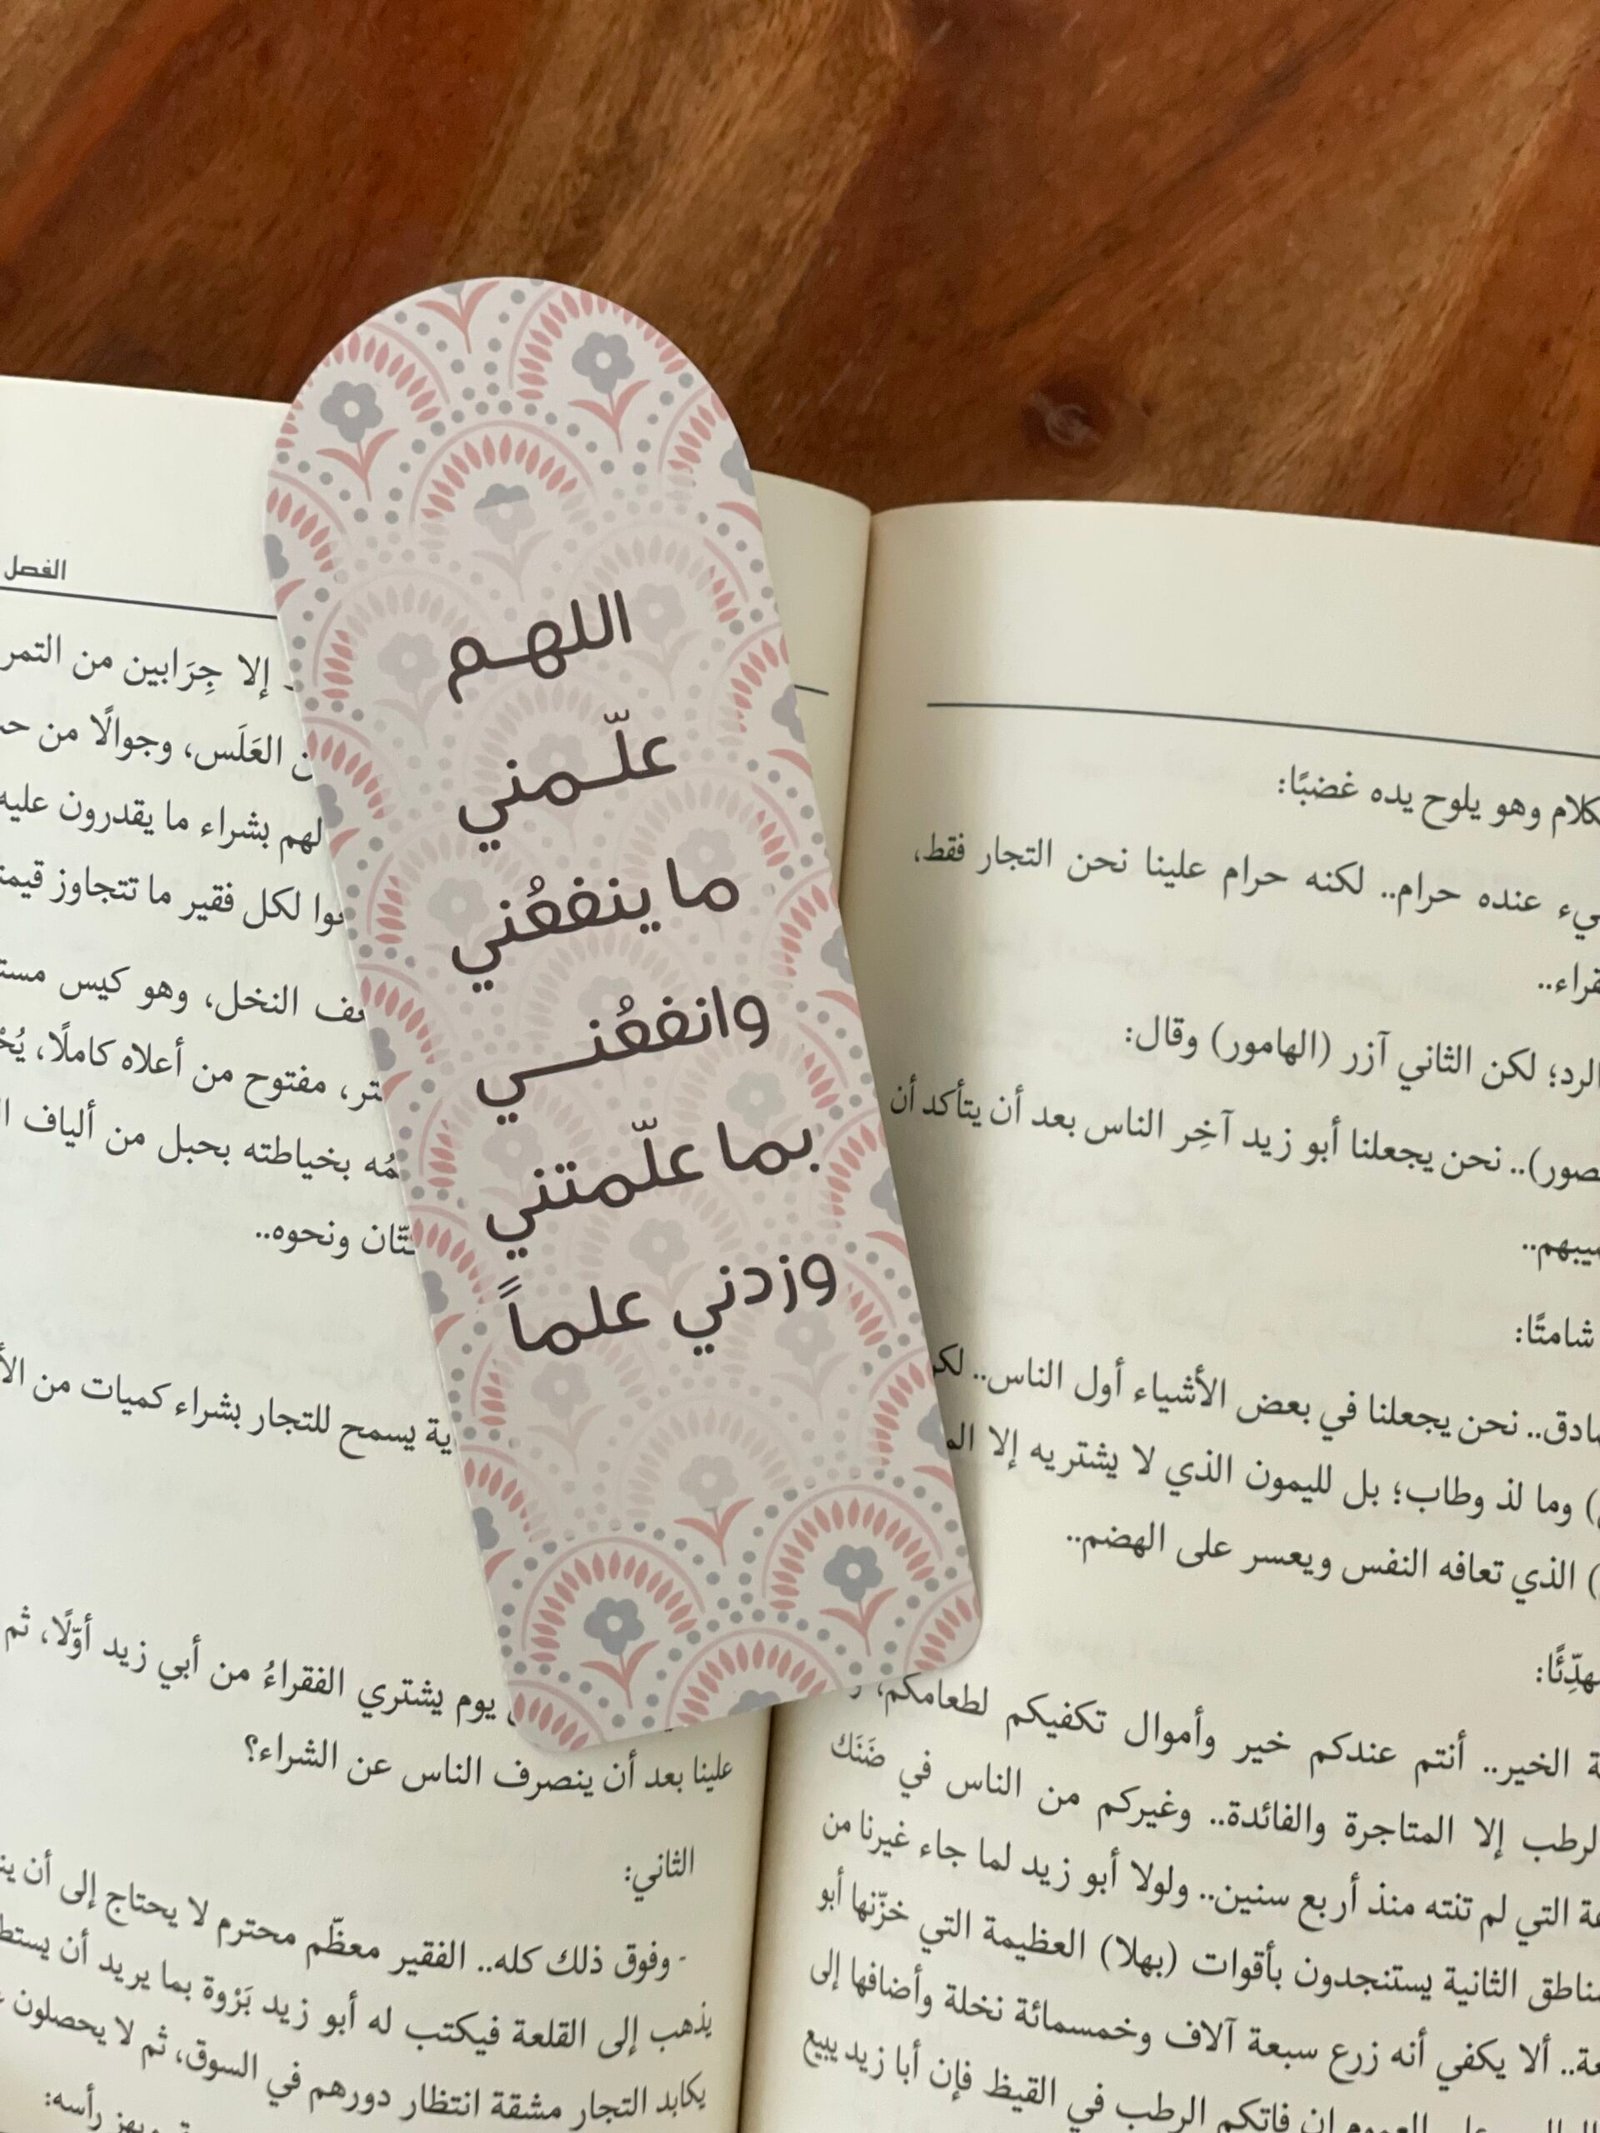 اللهم
علّمني
ما ينفعُني
وانفعُني
بما علّمتني
وزدني علماً
كلام وهو يلوح يده غضبًا:
عنده حرام.. لكنه حرام علينا نحن التجار فقط،
الرد؛ لكن الثاني آزر (الهامور) وقال:
نحن يجعلنا أبو زيد آخِر الناس بعد أن يتأكد أن
شامتًا:
نحن يجعلنا في بعض الأشياء أول الناس..
وما لذ وطاب؛ بل لليمون الذي لا يشتريه إلا
الذي تعافه النفس ويعسر على الهضم..
الخير.. أنتم عندكم خير وأموال تكفيكم لطعامكم،
إلا المتاجرة والفائدة.. وغيركم من الناس في ضَنَك
التي لم تنته منذ أربع سنين.. ولولا أبو زيد لما جاء غيرنا من
الثانية يستنجدون بأقوات (بهلا) العظيمة التي خزّنها أبو
ألا يكفي أنه زرع سبعة آلاف وخمسمائة نخلة وأضافها إلى
إن فاتكم الرطب في القيظ فإن أبا زيد يبيع
الفصل
إلا جِرَابين من التمر
العَلَس، وجوالًا من
لهم بشراء ما يقدرون عليه
لكل فقير ما تتجاوز
النخل، وهو كيس
مفتوح من أعلاه كاملًا،
بخياطته بحبل من ألياف
ونحوه..
يسمح للتجار بشراء كميات من
يوم يشتري الفقراءُ من أبي زيد أوّلًا، ثم
علينا بعد أن ينصرف الناس عن الشراء؟
الثاني:
- وفوق ذلك كله.. الفقير معظّم محترم لا يحتاج إلى أن
يذهب إلى القلعة فيكتب له أبو زيد بَرْوة بما يريد أن
يكابد التجار مشقة انتظار دورهم في السوق، ثم لا يحصلون
رأسه: